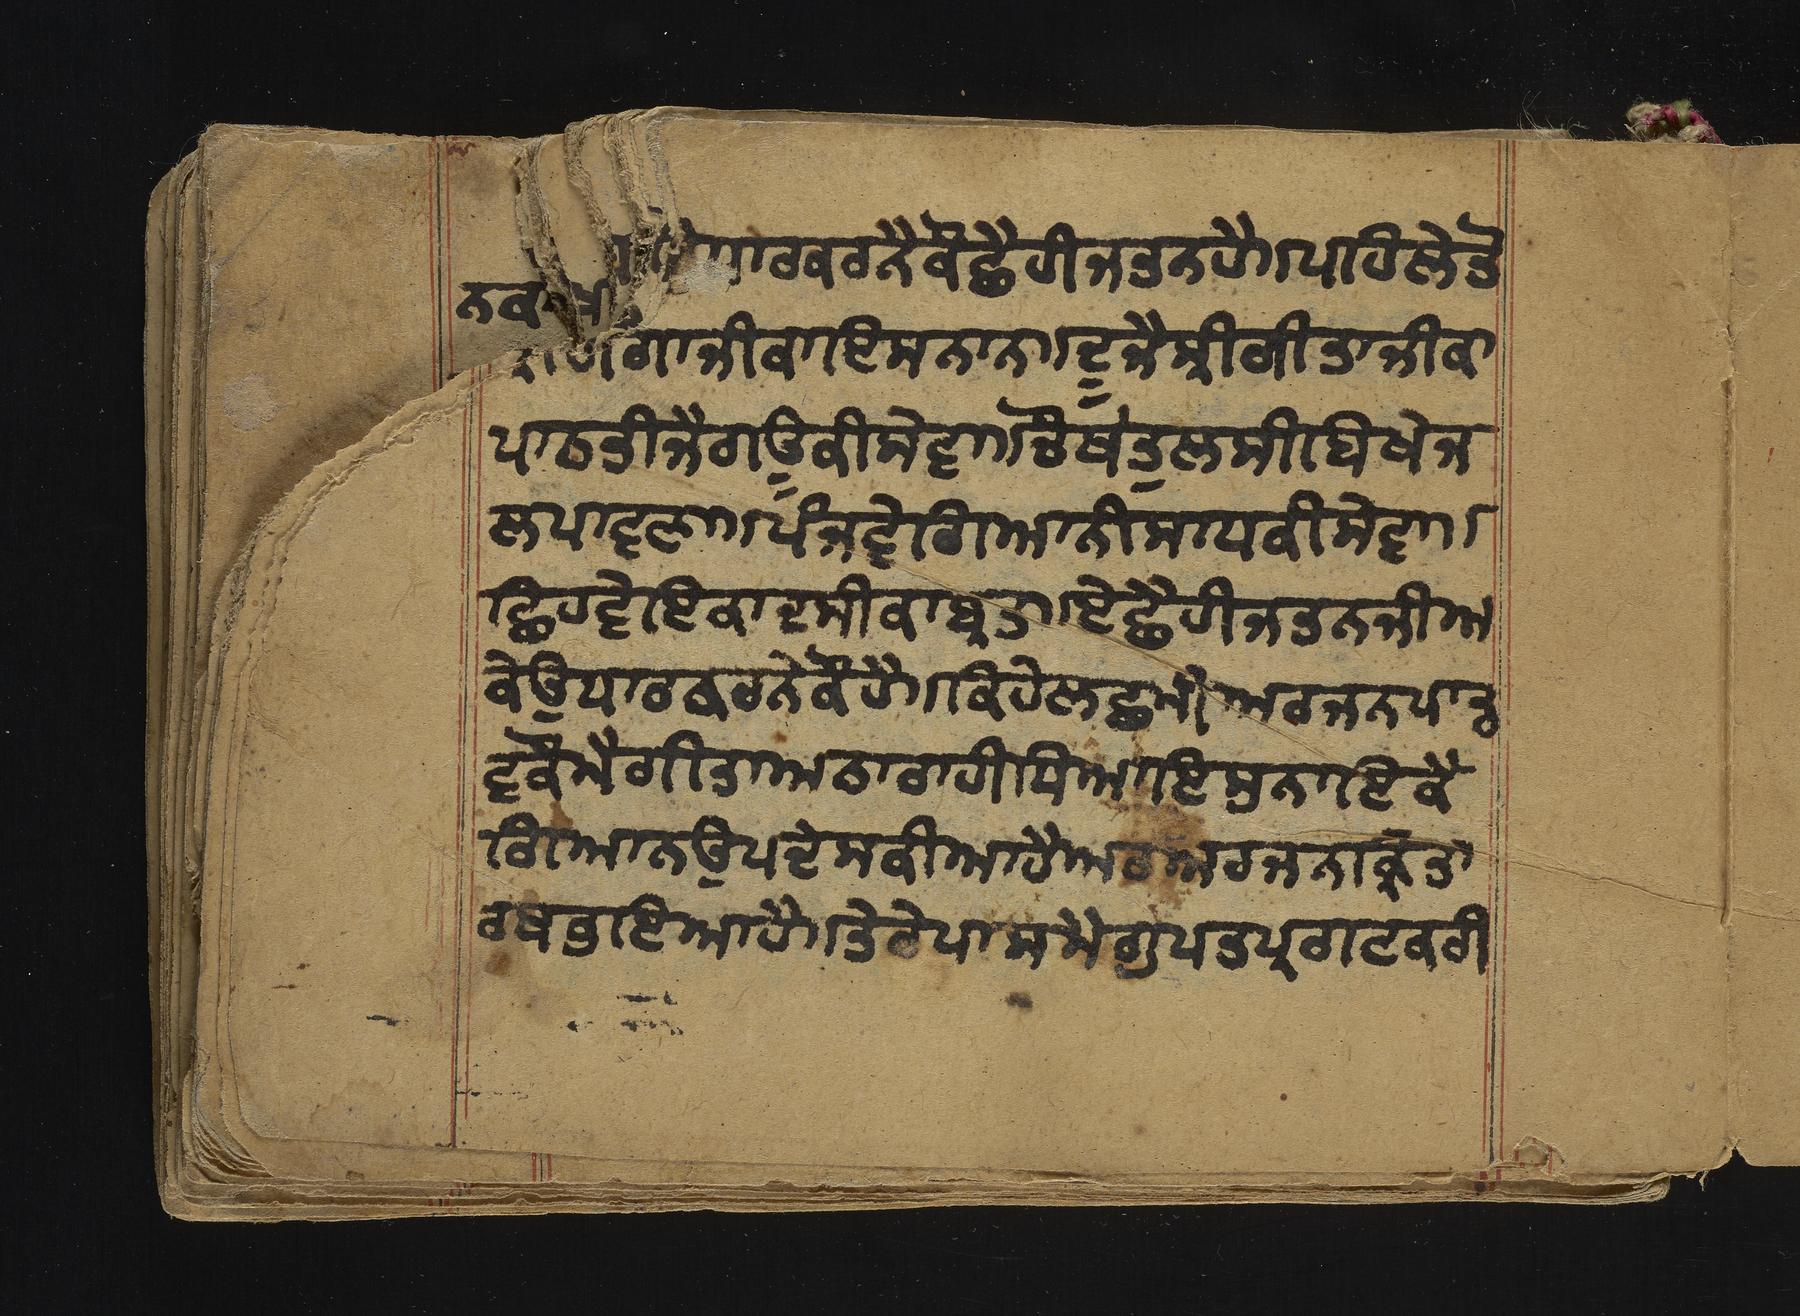 ਧਾਰਕਰਨੈਕੌਛੈਹੀਜਤਨਹੈ।ਪਹਿਲੇਤੋ
ਨਕ
ਗਾਜੀਕਾਇਸਨਾਨ।ਦੂਜੈਸ੍ਰੀਗੀਤਾਜੀਕਾ
ਪਾਠਤੀਜੈਗਊਕੀਸੇਵਾ।ਚੌਥੇਤੁਲਸੀਬਿਖੇਜ
ਲਪਾਵਣਾ।ਪੰਜਵੇਗਿਆਨੀਸਾਧਕੀਸੇਵਾ।
ਛਿਹਵੇਇਕਾਦਸੀਕਾਬ੍ਰਤ।ਏਛੈਹੀਜਤਨਜੀਅ
ਕੇਉਧਾਰਕਰਨੇਕੌਹੈ।ਕਿਹੇਲਛਮੀਅਰਜਨਪਾਤ੍ਰ
ਵਕੌਮੈਗੀਤਾਅਠਾਰਾਹੀਧਿਆਇਸੁਨਾਇਕੈ
ਗਿਆਨਉਪਦੇਸਕੀਆਹੈਅਰਅਰਜਨਕ੍ਰਿਤਾ
ਰਥਭਇਆਹੈ।ਤੇਰੇਪਾਸਮੈਗੁਪਤਪ੍ਰਗਟਕਰੀ